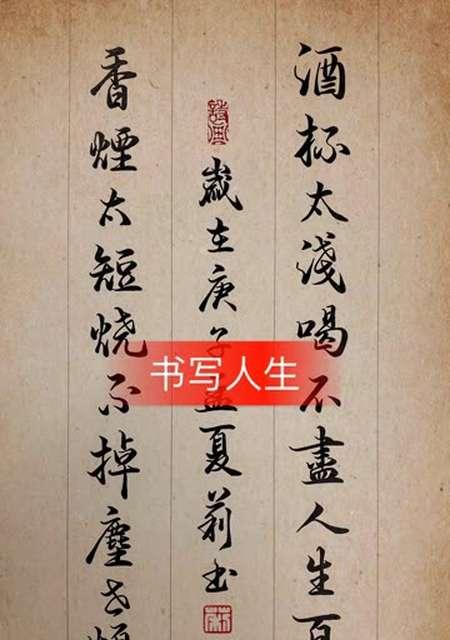 酒杯太浅喝不盡人生
歲在庚子孟夏莉书
香煙太短烧不掉塵世
书写人生